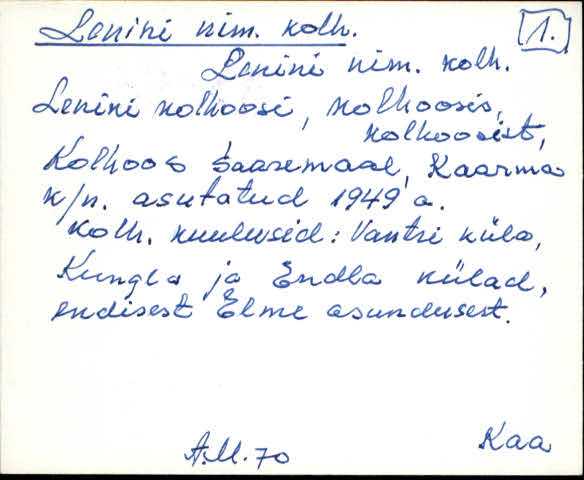 Lenini nim. kolh.
1.
Lenini nim. kolh.
Lenini kolhoosi, kolhoosis,
kolhoosist,
Kolhoos Saaremaal, Kaarma
k/n. asutatud 1949 a.
Kolh. kuulusid: Vantri küla,
Kungla ja Endla külad,
endisest Elme asundusest.
A.M. 70
Kaa